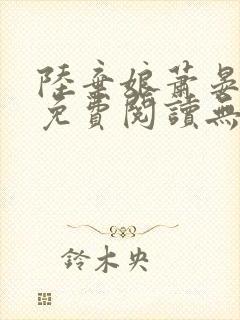 陸棄娘蕭晏
免費閱讀無
鈴木央